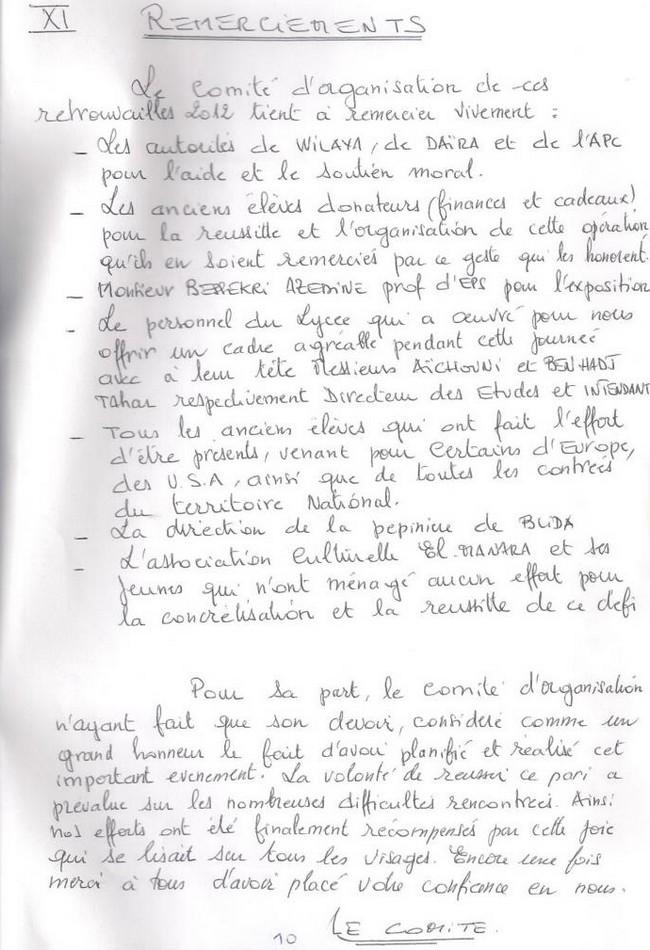 XI REMERCIEMENTS
Le Comité d'organisation de ces
retrouvailles 2012 tient à remercier vivement :
- Les autorités de WILAYA, de DAÏRA et de l'APC
pour l'aide et le soutien moral.
- Les anciens élèves donateurs (finances et cadeaux)
pour la reussitte et l'organisation de cette opération
qu'ils en soient remerciés par ce geste qui les honorent.
- Monsieur BEREKRI AZEDINE prof d'EPS pour l'exposition
- Le personnel du Lycée qui a œuvré pour nous
offrir un cadre agréable pendant cette journée
avec à leur tête Messieurs AÏCHOUNI et BENHADJ
Tahar respectivement Directeur des Etudes et INTENDANT
- Tous les anciens élèves qui ont fait l'effort
d'être présents, venant pour Certains d'Europe,
des U.S.A, ainsi que de toutes les contrées
du territoire National.
- La direction de la pepiniere de BLIDA
- L'association Culturelle El.MANARA et ses
jeunes qui n'ont ménagé aucun effort pour
la concrétisation et la reussitte de ce defi
Pour sa part, le comité d'organisation
n'ayant fait que son devoir, considère comme un
grand honneur le fait d'avoir planifié et réalisé cet
important evenement. La volonté de reussir ce pari a
prévalue sur les nombreuses difficultés rencontrées. Ainsi
nos efforts ont été finalement récompensés par cette joie
qui se lisait sur tous les visages. Encore une fois
merci à tous d'avoir placé votre confiance en nous.
LE COMITE.
10